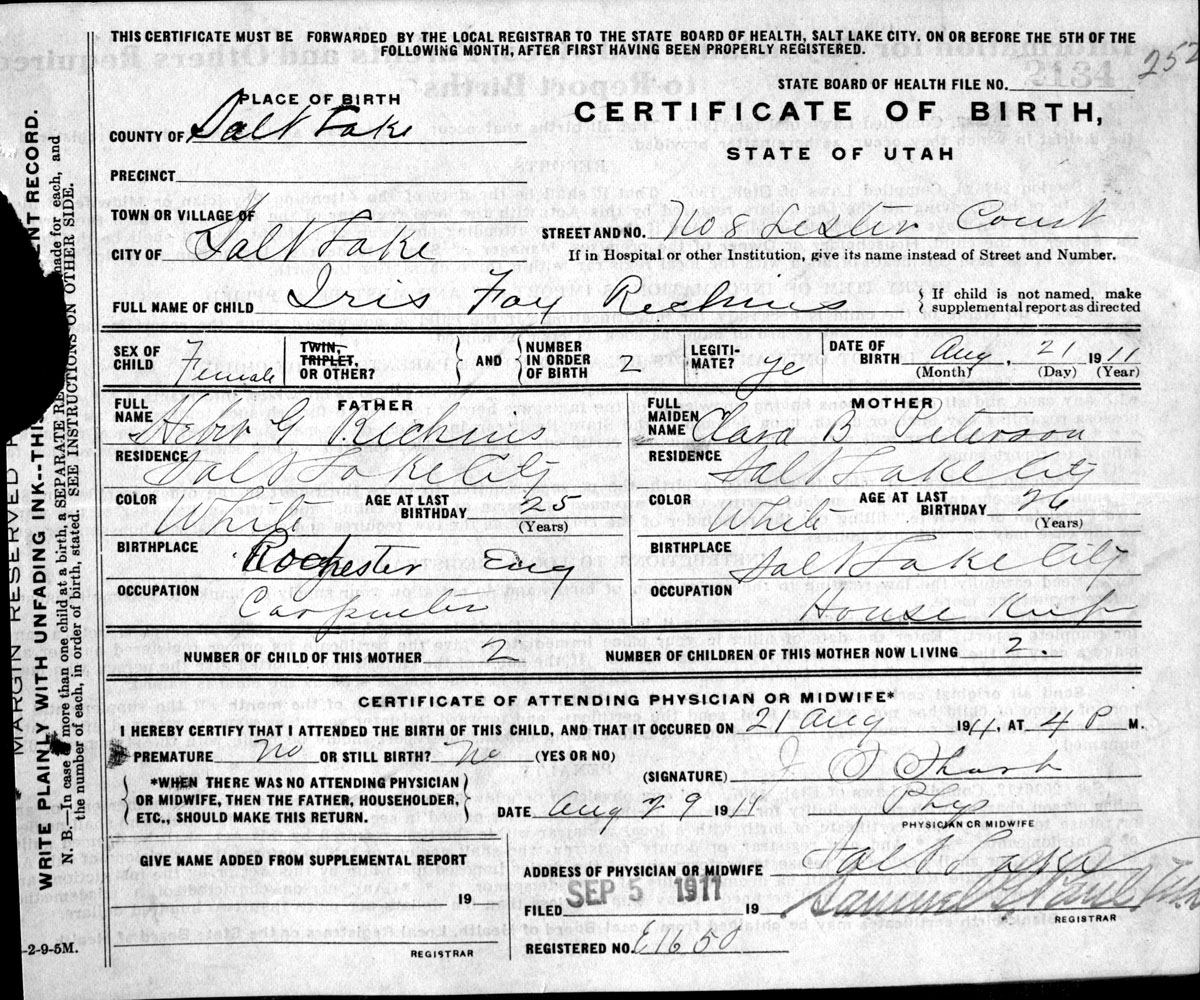 THIS CERTIFICATE MUST BE FORWARDED BY THE LOCAL REGISTRAR TO THE STATE BOARD OF HEALTH, SALT LAKE CITY. ON OR BEFORE THE 5TH OF THE
FOLLOWING MONTH, AFTER FIRST HAVING BEEN PROPERLY REGISTERED.
252
2134
STATE BOARD OF HEALTH FILE NO.
PLACE OF BIRTH
CERTIFICATE OF BIRTH,
COUNTY OF Salt Lake
STATE OF UTAH
PRECINCT
TOWN OR VILLAGE OF
STREET AND NO. No 8 Lester Court
CITY OF Salt Lake
If in Hospital or other Institution, give its name instead of Street and Number.
FULL NAME OF CHILD Iris Fay Richins
If child is not named, make
supplemental report as directed
SEX OF CHILD Female
TWIN, TRIPLET, OR OTHER?
AND
NUMBER IN ORDER OF BIRTH 2
LEGITI-MATE? ye
DATE OF BIRTH Aug 21 1911
(Month) (Day) (Year)
FATHER
FULL NAME G Richins
RESIDENCE Salt Lake City
COLOR White AGE AT LAST BIRTHDAY 25
(Years)
BIRTHPLACE Rochester Eng
OCCUPATION Carpenter
MOTHER
FULL MAIDEN NAME Clara B Peterson
RESIDENCE Salt Lake City
COLOR White AGE AT LAST BIRTHDAY 26
(Years)
BIRTHPLACE Salt Lake City
OCCUPATION House Keep
NUMBER OF CHILD OF THIS MOTHER 2
NUMBER OF CHILDREN OF THIS MOTHER NOW LIVING 2.
CERTIFICATE OF ATTENDING PHYSICIAN OR MIDWIFE*
I HEREBY CERTIFY THAT I ATTENDED THE BIRTH OF THIS CHILD, AND THAT IT OCCURED ON 21 Aug 1911, AT 4 P M.
PREMATURE No OR STILL BIRTH? No (YES OR NO)
(SIGNATURE)
*WHEN THERE WAS NO ATTENDING PHYSICIAN
OR MIDWIFE, THEN THE FATHER, HOUSEHOLDER,
ETC., SHOULD MAKE THIS RETURN.
DATE Aug 29 1911 Phys
PHYSICIAN OR MIDWIFE
GIVE NAME ADDED FROM SUPPLEMENTAL REPORT
ADDRESS OF PHYSICIAN OR MIDWIFE Salt Lake
19
FILED SEP 5 1911 19 Samuel G
REGISTRAR
REGISTERED NO. E1650
REGISTRAR
-2-9-5M.
MARGIN RESERVED
WRITE PLAINLY WITH UNFADING INK--THIS ENT RECORD.
N. B.—In case of more than one child at a birth, a SEPARATE RE made for each, and
the number of each, in order of birth, stated. SEE INSTRUCTIONS ON OTHER SIDE.